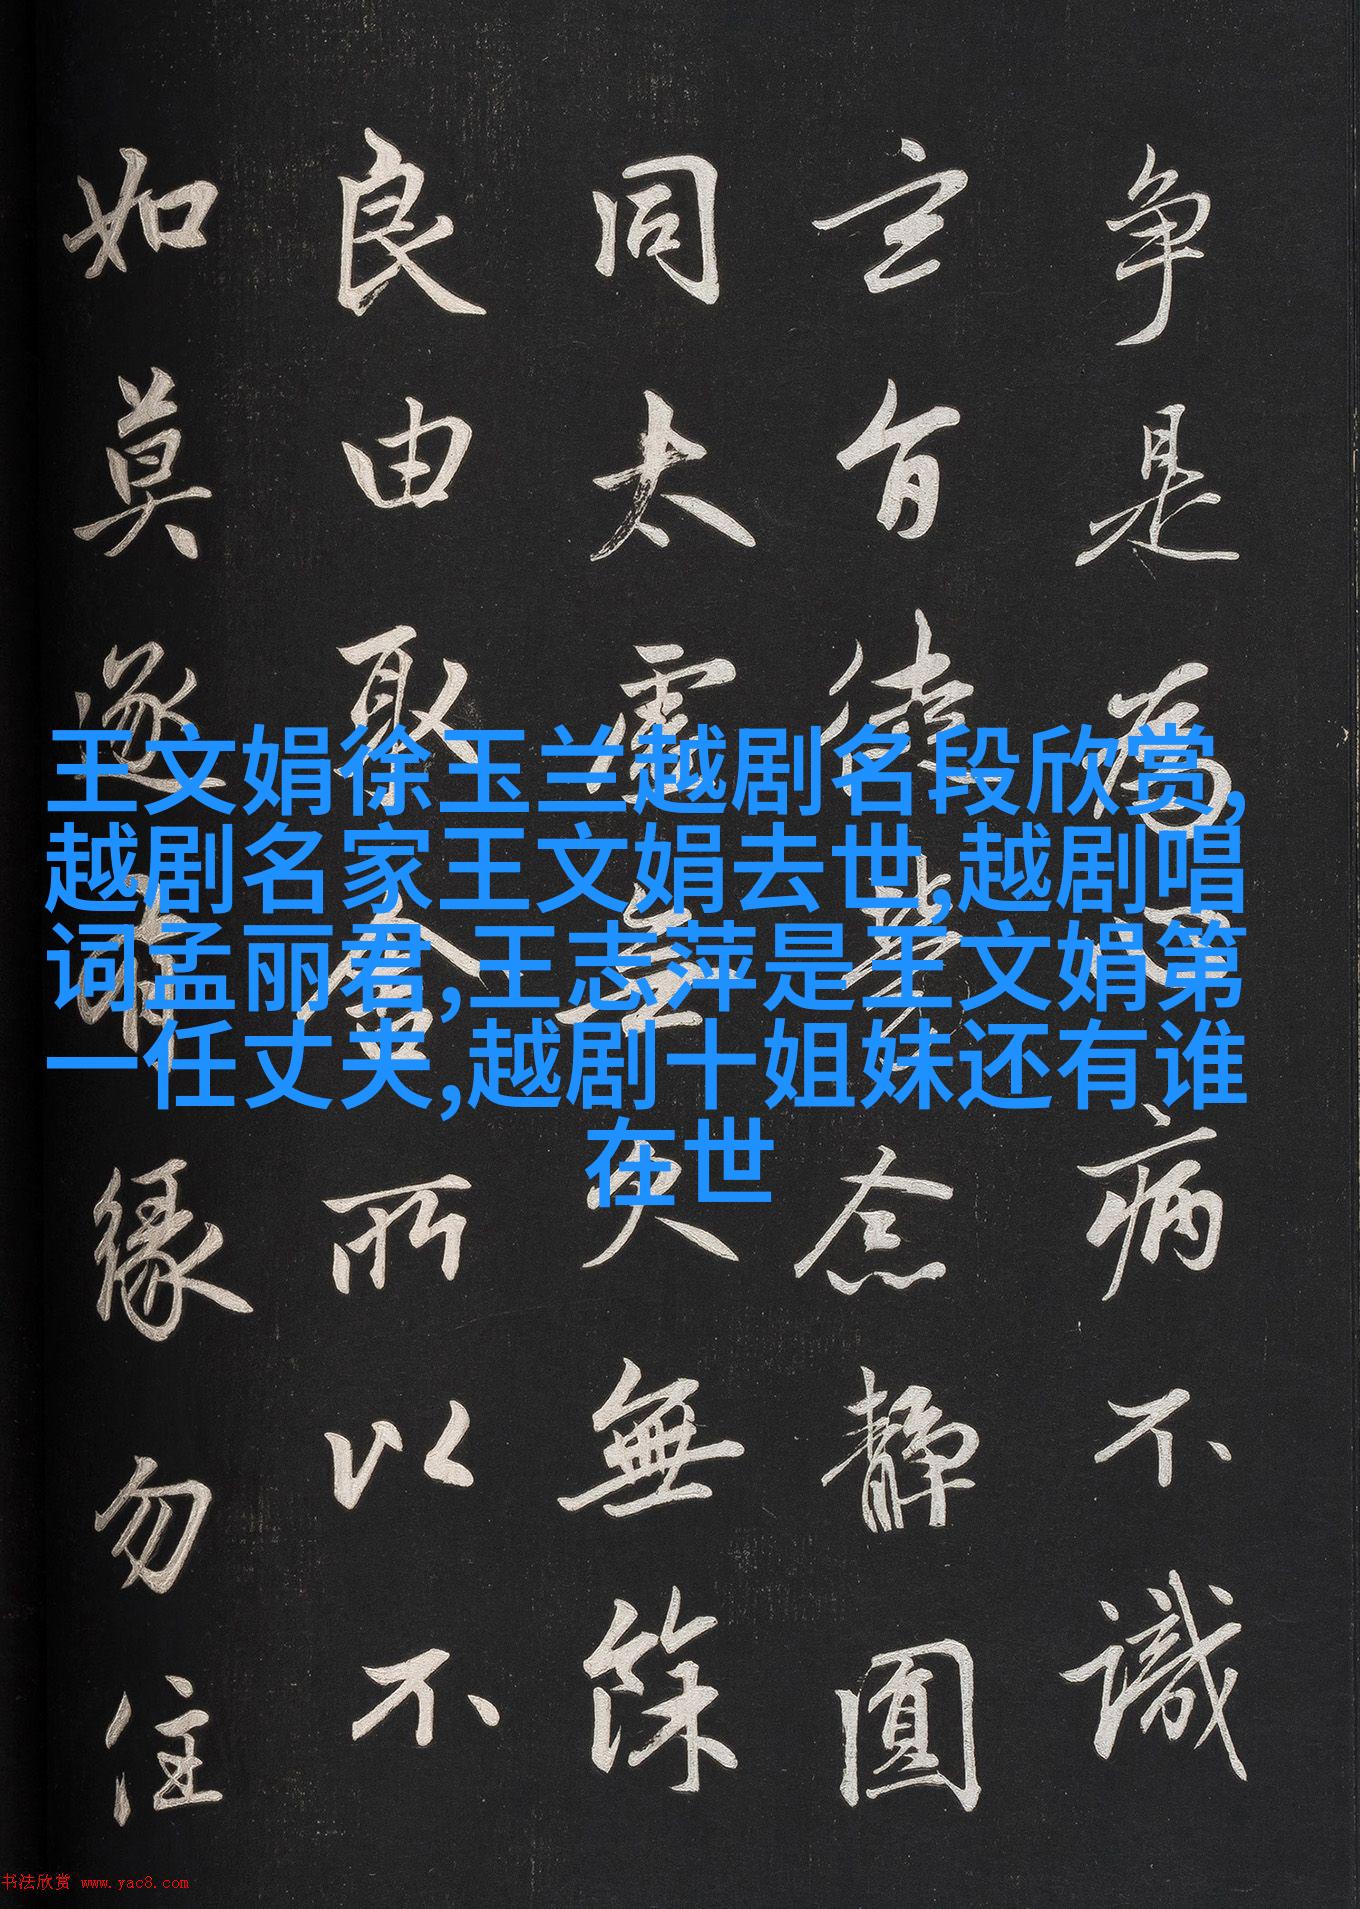 争是為心病不識
玄旨徒勞念静圓
同太虚無欠無餘
良由取舍所以不
如莫逐有緣勿住
王文娟徐玉兰越剧名段欣赏,
越剧名家王文娟去世,越剧唱
词孟丽君,王志萍是王文娟第
一任丈夫,越剧十姐妹还有谁
在世
书法欣赏 www.yac8.com